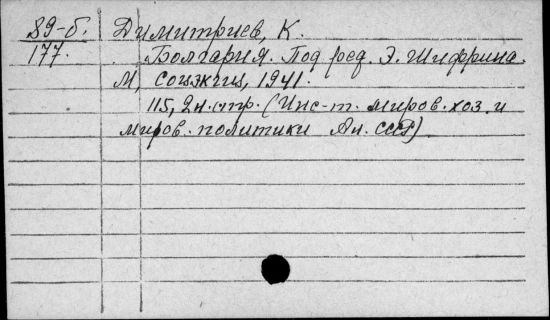 89-б. Димитриев, К.
177. Болгария. Под ред. Э. Шифрина.
М, Соцэкгиз, 1941.
115, 2 н. стр. (Инс-т. миров. хоз. и
миров. политики Ак. СССР)